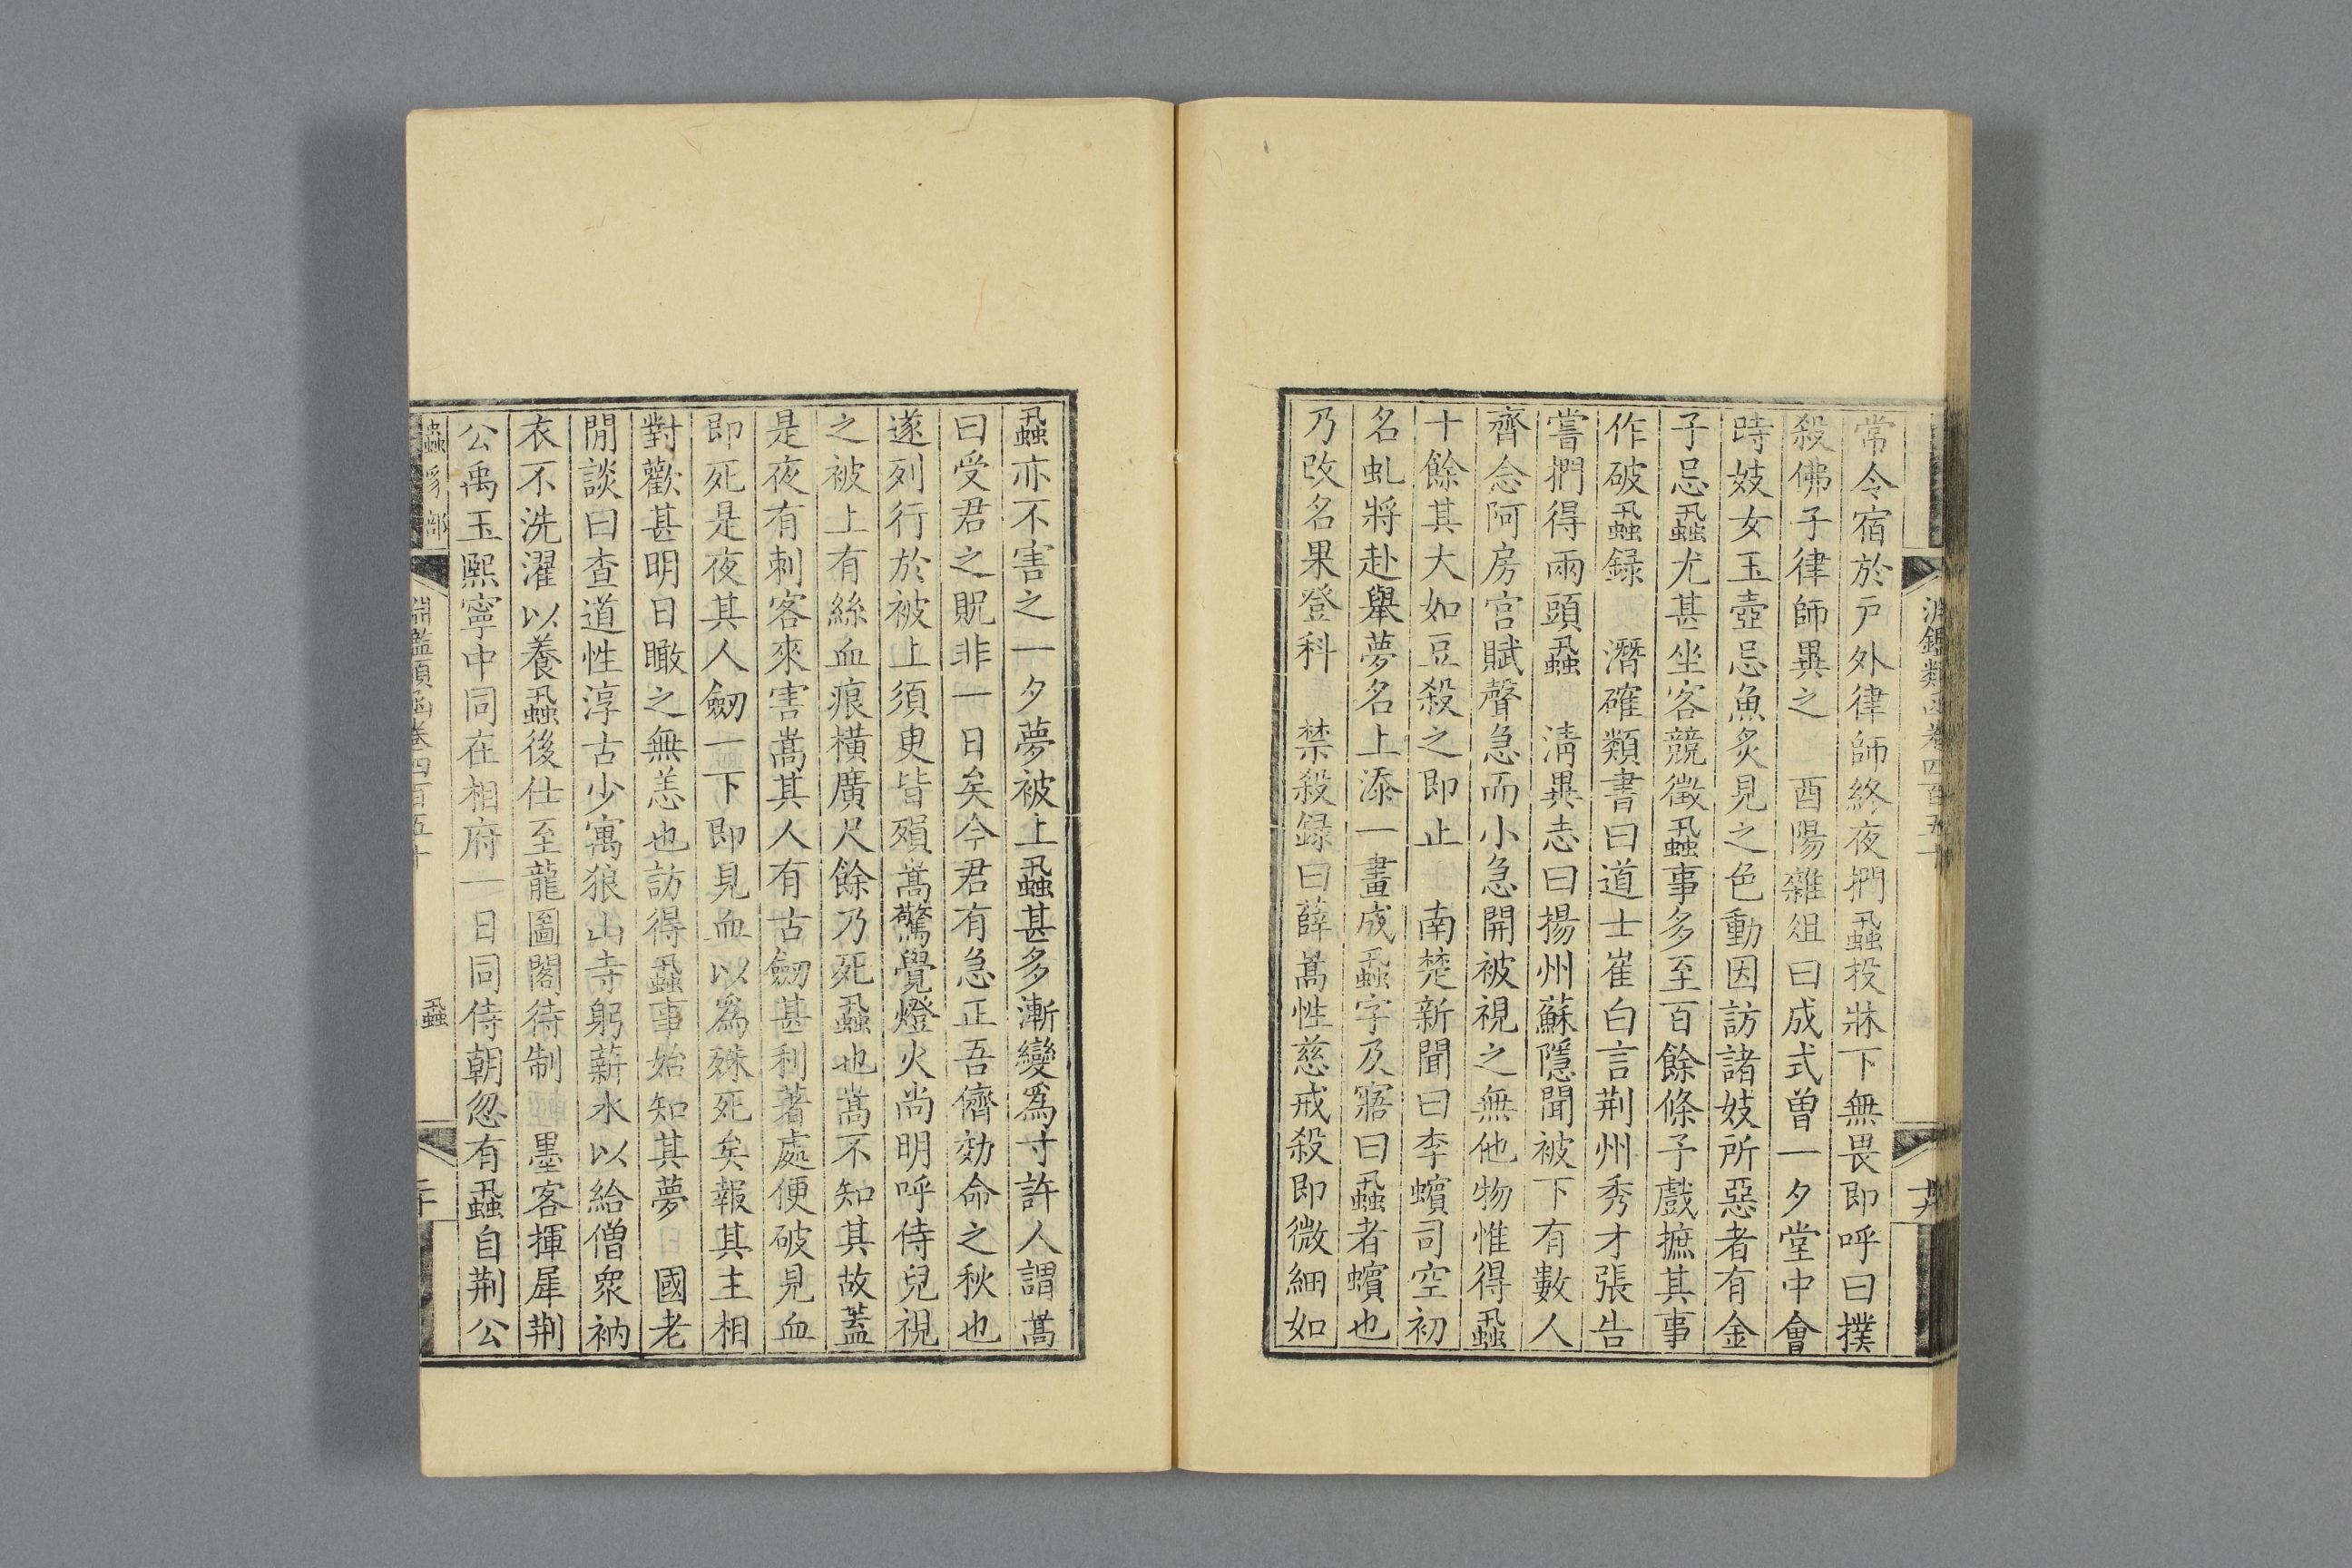 淵鑑類函卷四百五十
常令宿於戸外律師終夜捫蝨投牀下無畏即呼曰撲
殺佛子律師異之　酉陽雜俎曰成式曽一夕堂中會
時妓女玉壺忌魚炙見之色動因訪諸妓所惡者有金
子忌蝨尤甚坐客競徵蝨事多至百餘條予戲摭其事
作破蝨録　潛確類書曰道士崔白言荆州秀才張告
嘗捫得兩頭蝨　清異志曰揚州蘇隱聞被下有數人
齊念阿房宫賦聲急而小急開被視之無他物惟得蝨
十餘其大如豆殺之即止　南楚新聞曰李蠙司空初
名虬將赴舉夢名上添一畫成蝨字及寤曰蝨者蠙也
乃改名果登科　禁殺録曰薛嵩性慈戒殺即微細如
蝨亦不害之一夕夢被上蝨甚多漸變爲寸許人謂嵩
曰受君之貺非一日矣今君有急正吾儕効命之秋也
遂列行於被上須臾皆殞嵩驚覺燈火尚明呼侍兒視
之被上有絲血痕橫廣尺餘乃死蝨也嵩不知其故蓋
是夜有刺客來害嵩其人有古劒甚利著處便破見血
即死是夜其人劒一下即見血以爲殊死矣報其主相
對歡甚明日瞰之無恙也訪得蝨事始知其夢　國老
閒談曰查道性淳古少寓狼山寺躬薪水以給僧衆衲
衣不洗濯以養蝨後仕至龍圖閣待制　墨客揮犀荆
公禹玉熙寧中同在相府一日同侍朝忽有蝨自荆公
蟲豸部
淵鑑類函卷四百五十
蝨